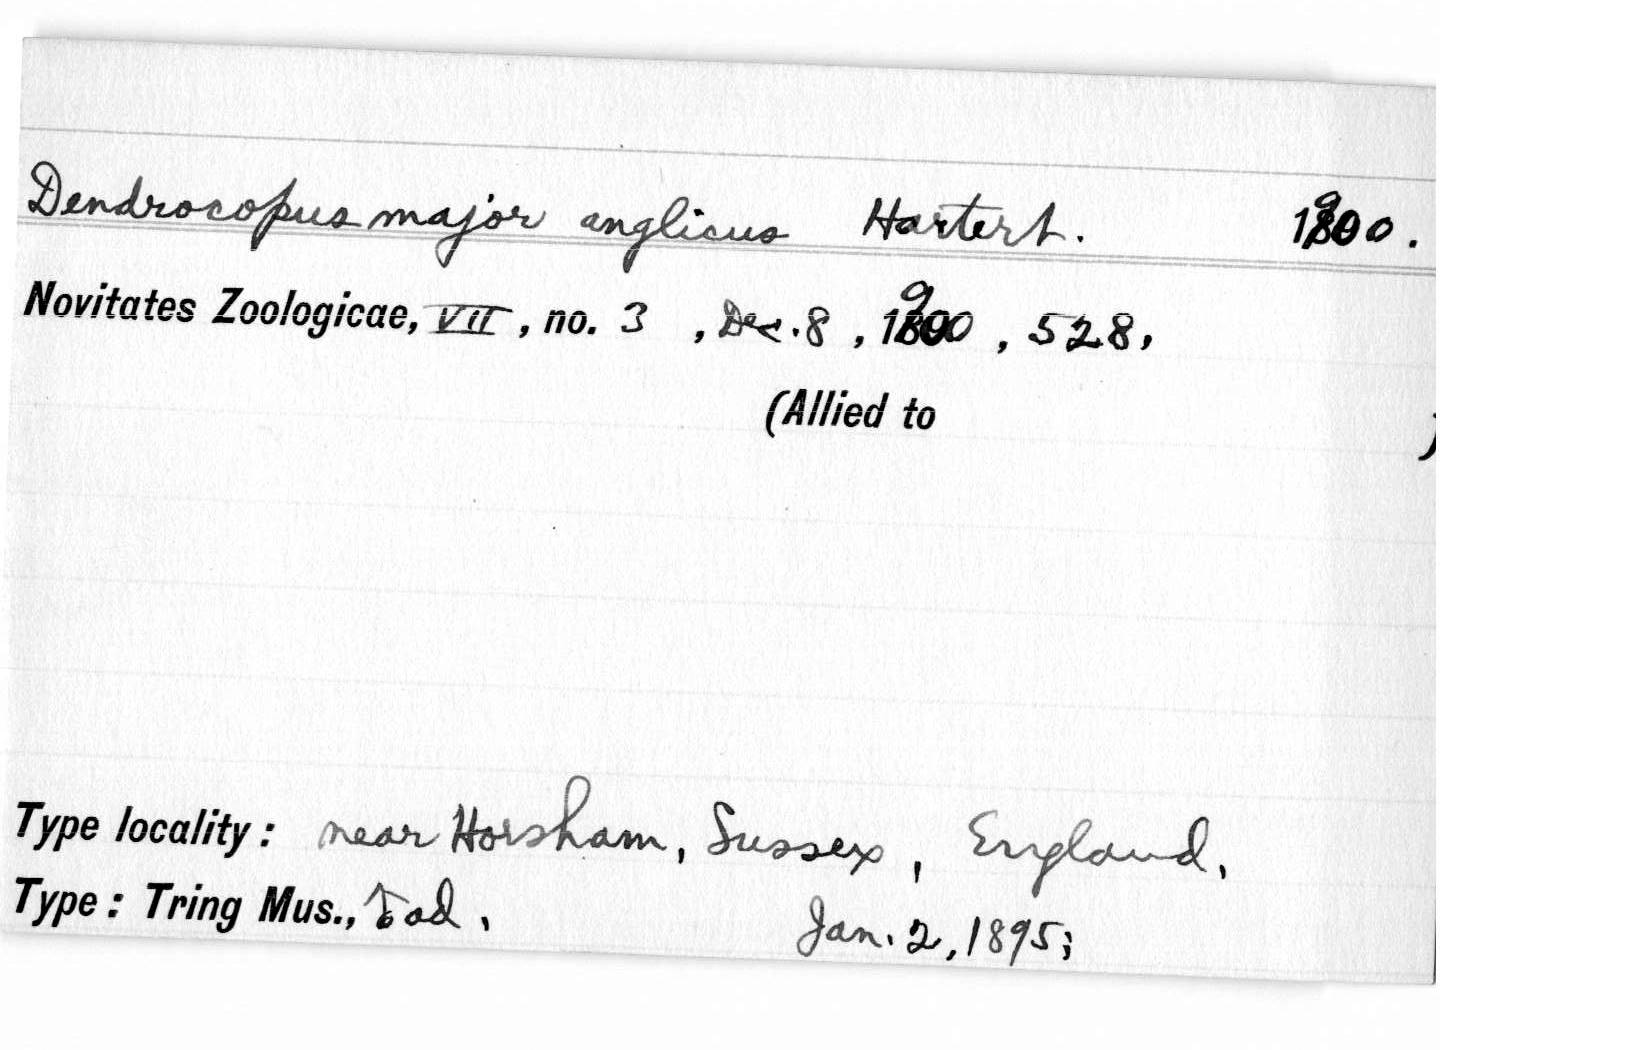 Dendrocopus major anglicus Hartert. 1900.
Novitates Zoologicae, VII, no. 3, Dec. 8, 1900, 528,
(Allied to )
Type locality: near Horsham, Sussex, England,
Type: Tring Mus., ♂ ad, Jan. 2, 1895;